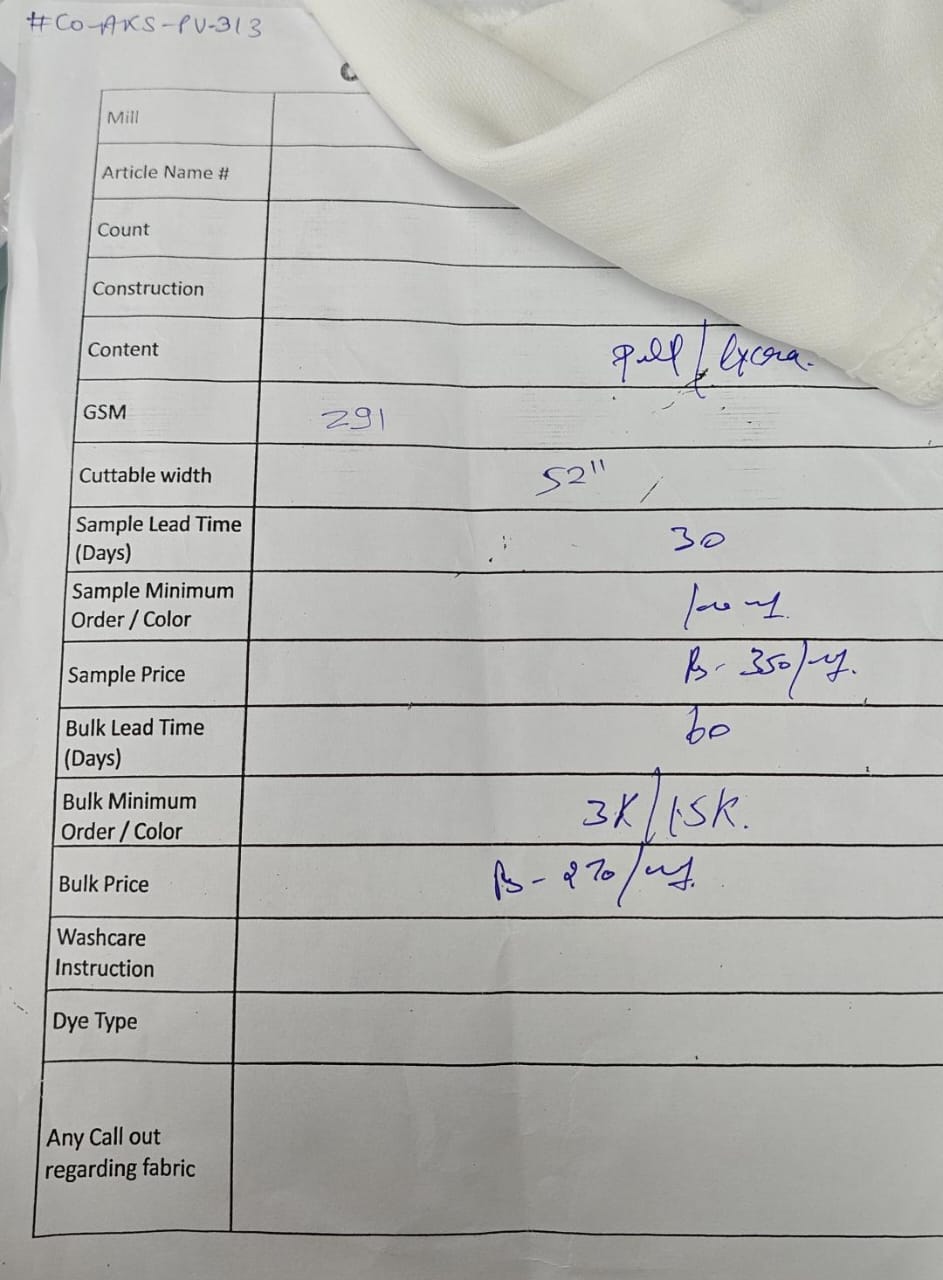 #CO-AKS-PV-313
Mill
Article Name #
Count
Construction
Content / lycra.
GSM 291
Cuttable width 52"
Sample Lead Time
(Days) 30
Sample Minimum
Order / Color 100
Sample Price Rs- 350/
Bulk Lead Time
(Days) 60
Bulk Minimum
Order / Color 3K/1.5K.
Bulk Price Rs- 270/
Washcare
Instruction
Dye Type
Any Call out
regarding fabric